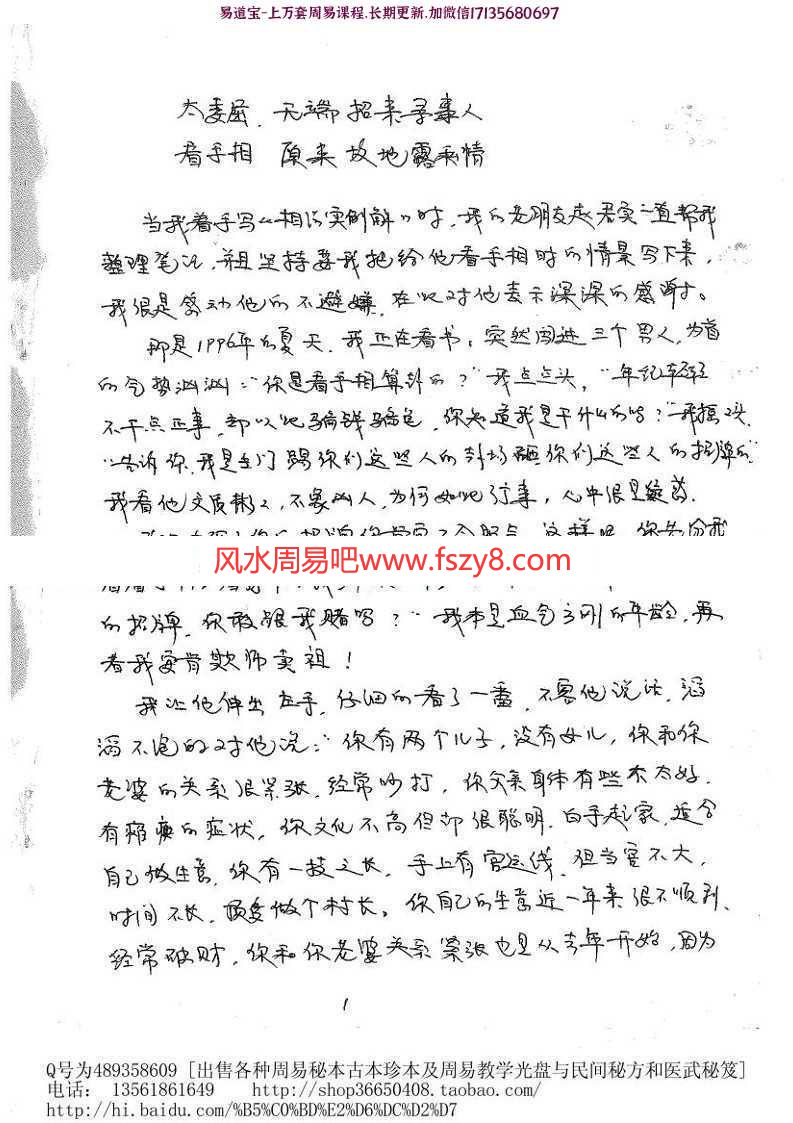 易道宝-上万套周易课程.长期更新.加微信17135680697
太委屈、无端招来寻事人
看手相 原来故地露私情
当我着手写《相法实例解》时，我的老朋友赵君实一直帮我
整理笔记，并且坚持要我把给他看手相时的情景写下来，
我很是感动他的不避嫌，在此对他表示深深的感谢。
那是1996年的夏天，我正在看书，突然闯进三个男人，为首
的气势汹汹：“你是看手相算卦的？”我点点头，“年纪轻轻
不干点正事，却以此骗钱骗色，你知道我是干什么的吗？”我摇头
“告诉你，我是专门踢你们这些人的卦场砸你们这些人的招牌的”
我看他文质彬彬，不象凶人，为何如此行事，心中很是疑惑.
风水周易吧www.fszy8.com
的招牌，你敢跟我赌吗？”我本是血气方刚的年龄，再
者我要背欺师卖祖！
我让他伸出左手，仔细的看了一番，不容他说话，滔
滔不绝的对他说：“你有两个儿子，没有女儿，你和你
老婆的关系很紧张，经常吵打，你父亲身体有些不太好.
有瘫痪的症状，你文化不高但却很聪明，白手起家，适合
自己做生意，你有一技之长，手上有官运线，但当官不大，
时间不长，顶多做个村长。你自己的生意近一年来很不顺利、
经常破财，你和你老婆关系紧张也是从去年开始，因为
1
Q号为489358609 [出售各种周易秘本古本珍本及周易教学光盘与民间秘方和医武秘笈]
电话: 13561861649 http://shop36650408.taobao.com/
http://hi.baidu.com/%B5%C0%BD%E2%D6%DC%D2%D7